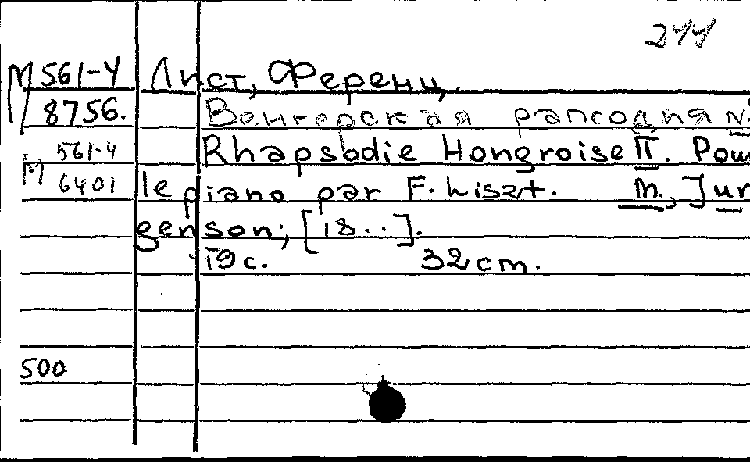 244
М 561-4 Лист, Ференц.
8756. Венгерская рапсодия №
561-4 Rhapsodie Hongroise II. Pour
М 6401 le piano par F. Liszt. M., Jur
genson, [18..].
19 с. 32 cm.
500